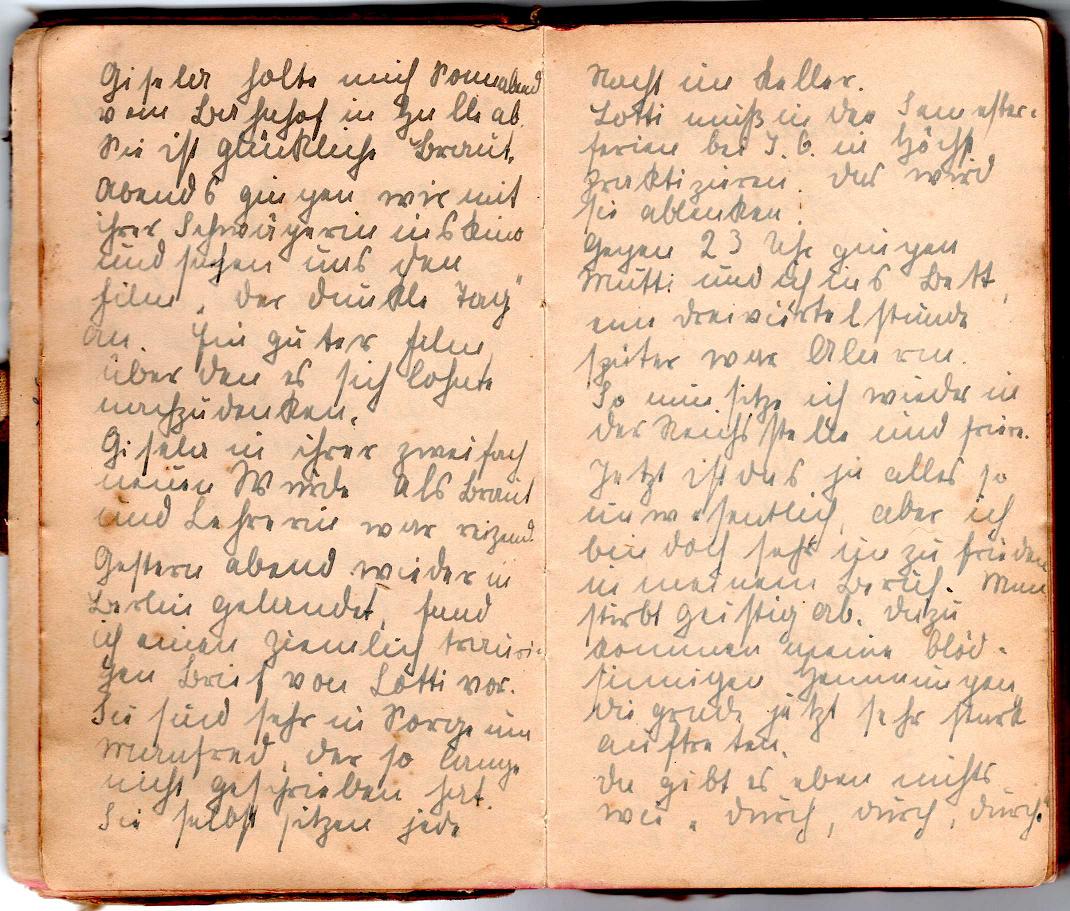 Gisela holte mich Sonnabend
vom Bahnhof in Halle ab.
Sie ist glückliche Braut.
Abends gingen wir mit
ihrer Schwägerin ins Kino
und sahen uns den
Film „Der dunkle Tag"
an. Ein guter Film,
über den es sich lohnte
nachzudenken.
Gisela in ihrer zweifach
neuen Würde als Braut
und Lehrerin war reizend.
Gestern abend wieder in
Berlin gelandet, fand
ich einen ziemlich trauri-
gen Brief von Lotti vor.
Sie sind sehr in Sorge um
Manfred, der so lange
nicht geschrieben hat.
Sie selbst sitzen jede
Nacht im Keller.
Lotti muß in den Semester-
ferien bei I.G. in Höchst
praktizieren. Das wird
sie ablenken.
Gegen 23 Uhr gingen
Mutti und ich ins Bett,
eine dreiviertelstunde
später war Alarm.
So nun sitze ich wieder in
der Reichsstelle und friere.
Jetzt ist das ja alles so
unwesentlich, aber ich
bin doch sehr unzufrieden
in meinem Beruf. Man
stirbt geistig ab. Dazu
kommen meine blöd-
sinnigen Hemmungen,
die grade jetzt sehr stark
auftreten.
Da gibt es eben nichts
wie „durch, durch, durch.